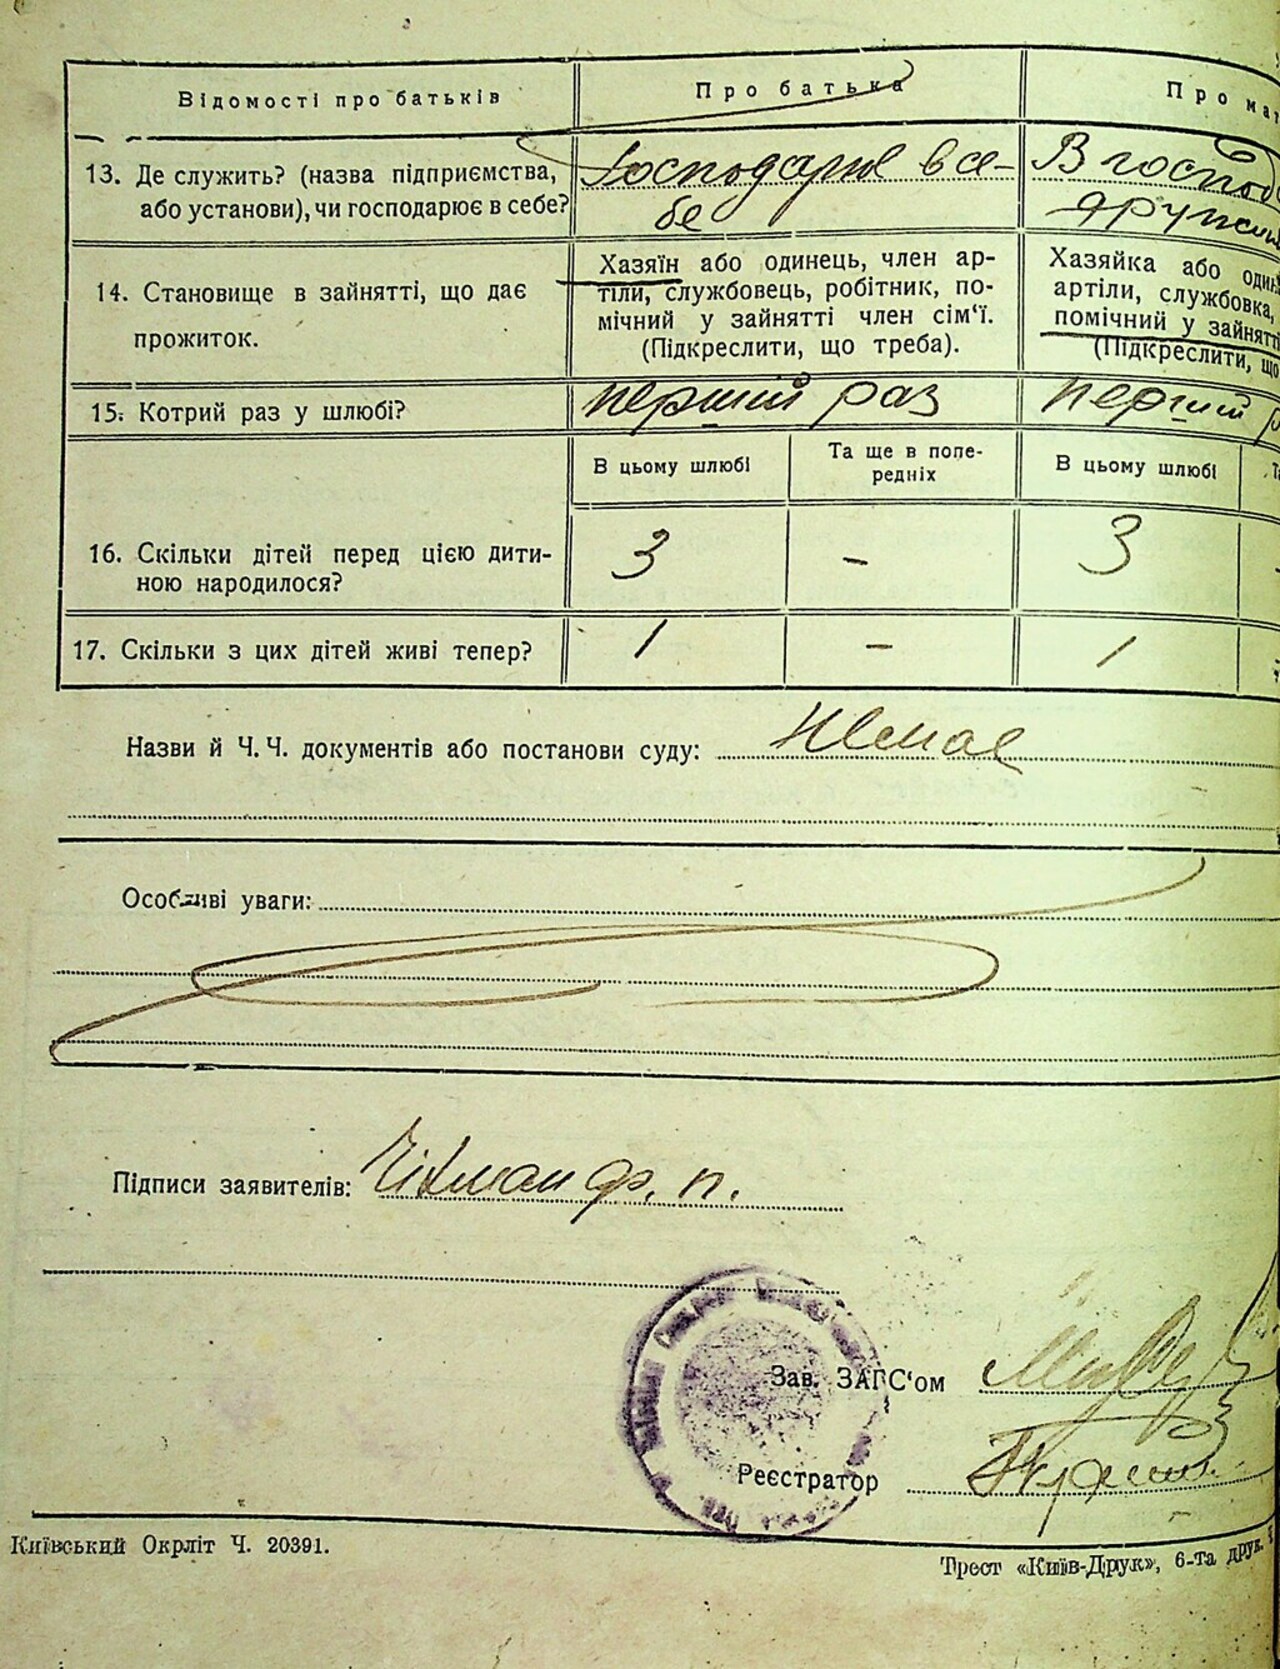 Відомості про батьків
Про батька
Про мат
13. Де служить? (назва підприємства,
або установи), чи господарює в себе?
Господарює в се-
бе
В господ
14. Становище в зайнятті, що дає
прожиток.
Хазяїн або одинець, член ар-
тіли, службовець, робітник, по-
мічний у зайнятті член сім‘ї.
(Підкреслити, що треба).
Хазяйка або один
артіли, службовка,
помічний у зайнятті
(Підкреслити, що
15. Котрий раз у шлюбі?
перший раз
перший р
В цьому шлюбі
Та ще в попе-
редніх
В цьому шлюбі
16. Скільки дітей перед цією дити-
ною народилося?
3
-
3
17. Скільки з цих дітей живі тепер?
1
-
1
Назви й Ч. Ч. документів або постанови суду: Немає
Особливі уваги:
Підписи заявителів: Ф. П.
Зав. ЗАГС‘ом
Реєстратор
Київський Окрліт Ч. 20391.
Трест «Київ-Друк», 6-та друк.